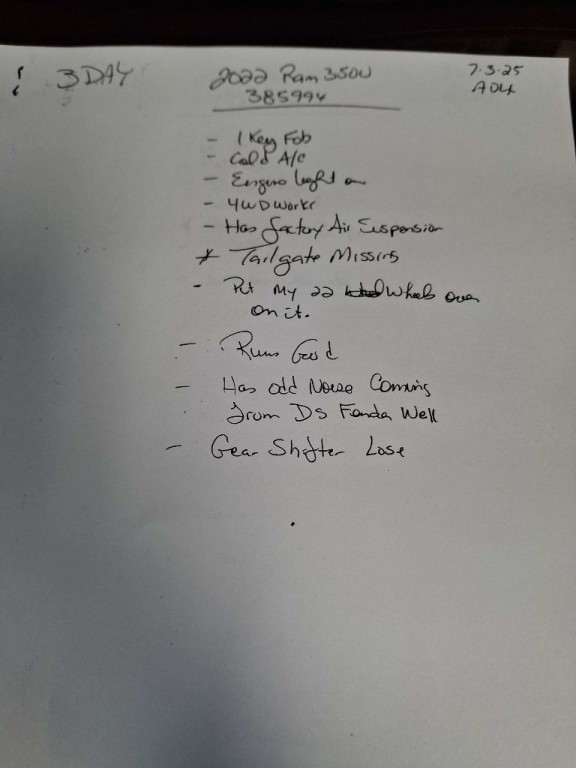 3 DAY 2022 Ram 3500 7-3-25
385994
- 1 Key Fob
- Cold A/c
- Engine light on
- 4WD Works
- Has factory Air Suspension
* Tailgate Missing
- Put My 22 Wheels over
on it.
- Runs Good
- Has odd Noise Coming
from DS Fender Well
- Gear Shifter Lose